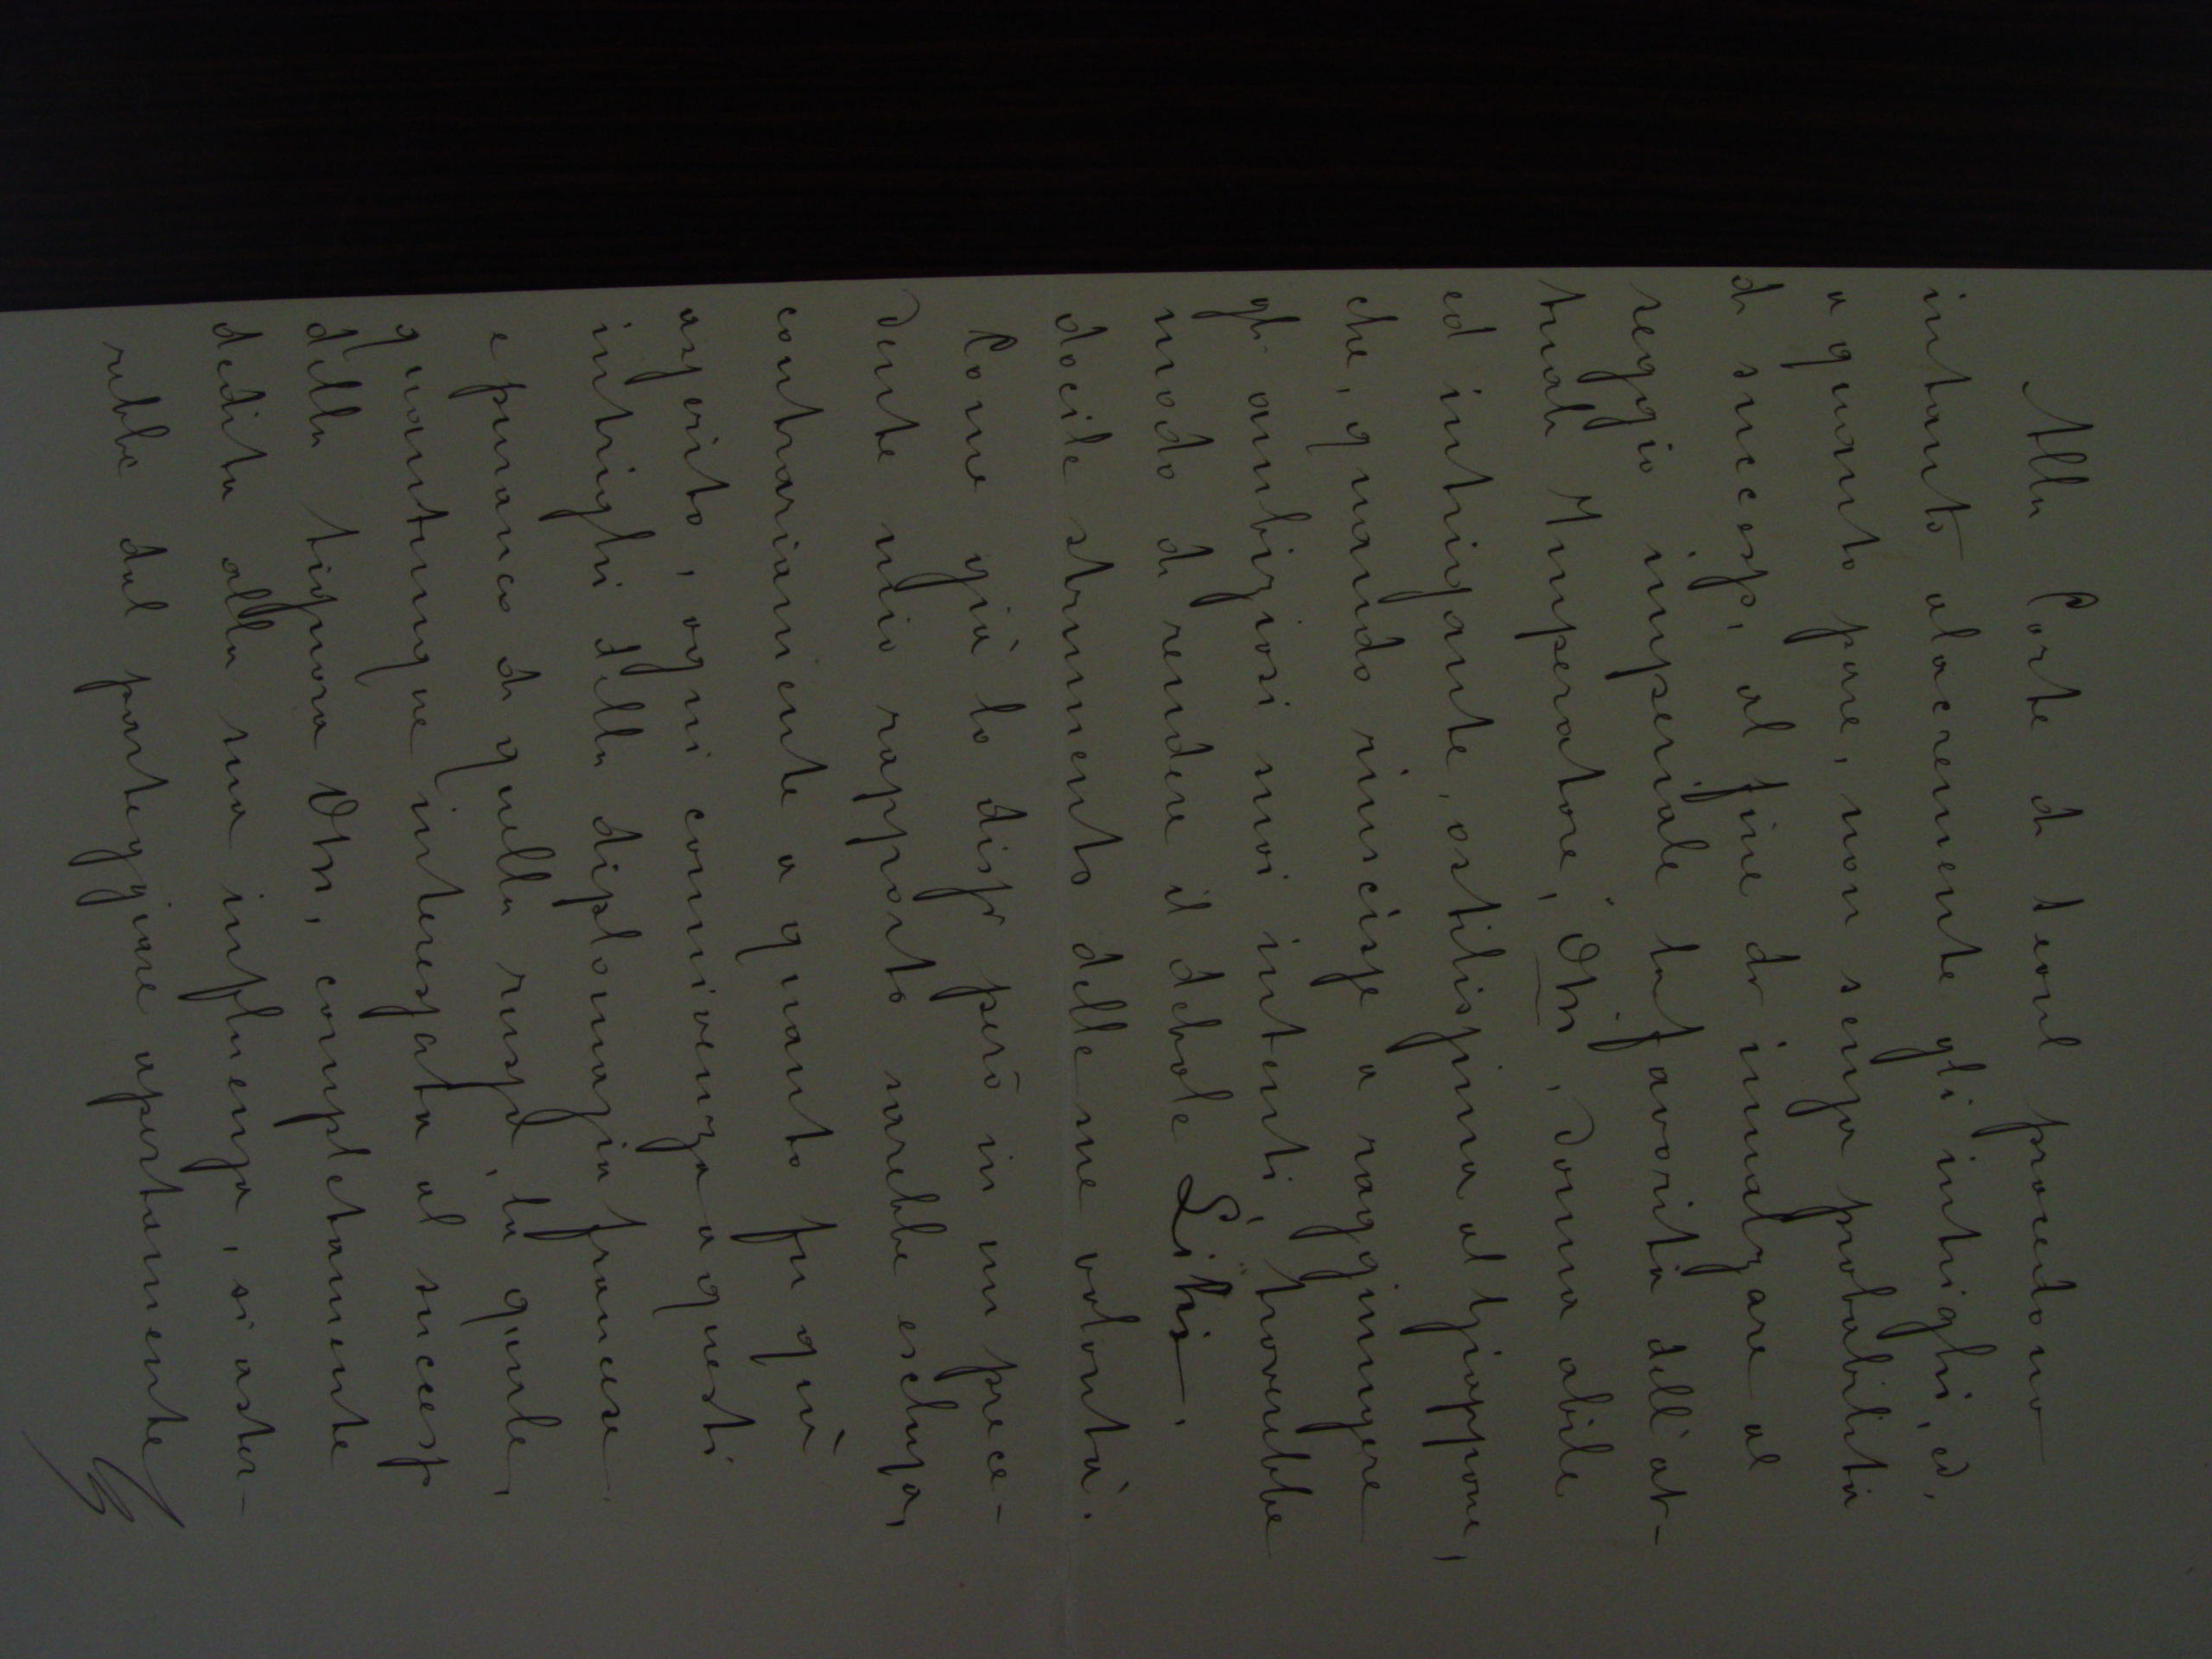 Alla Corte di Seoul procedono
intanto alacremente gli intrighi, ed,
a quanto pare, non senza probabilità
di successo, al fine di innalzare al
seggio imperiale la favorita dell'at-
tuale Imperatore, Om, donna abile
ed intrigante, ostilissima al Giappone,
che, quando riuscisse a raggiungere
gli ambiziosi suoi intenti, troverebbe
modo di rendere il debole
docile strumento delle sue volontà.
Come già lo dissi però in un prece-
dente mio rapporto sarebbe esclusa,
contrariamente a quanto fu quì
asserito, ogni connivenza a questi
intrighi della diplomazia francese
e puranco di quella russa, la quale,
quantunque interessata al successo
della signora Om, completamente
dedita alla sua influenza, si aster-
rebbe dal parteggiare apertamente